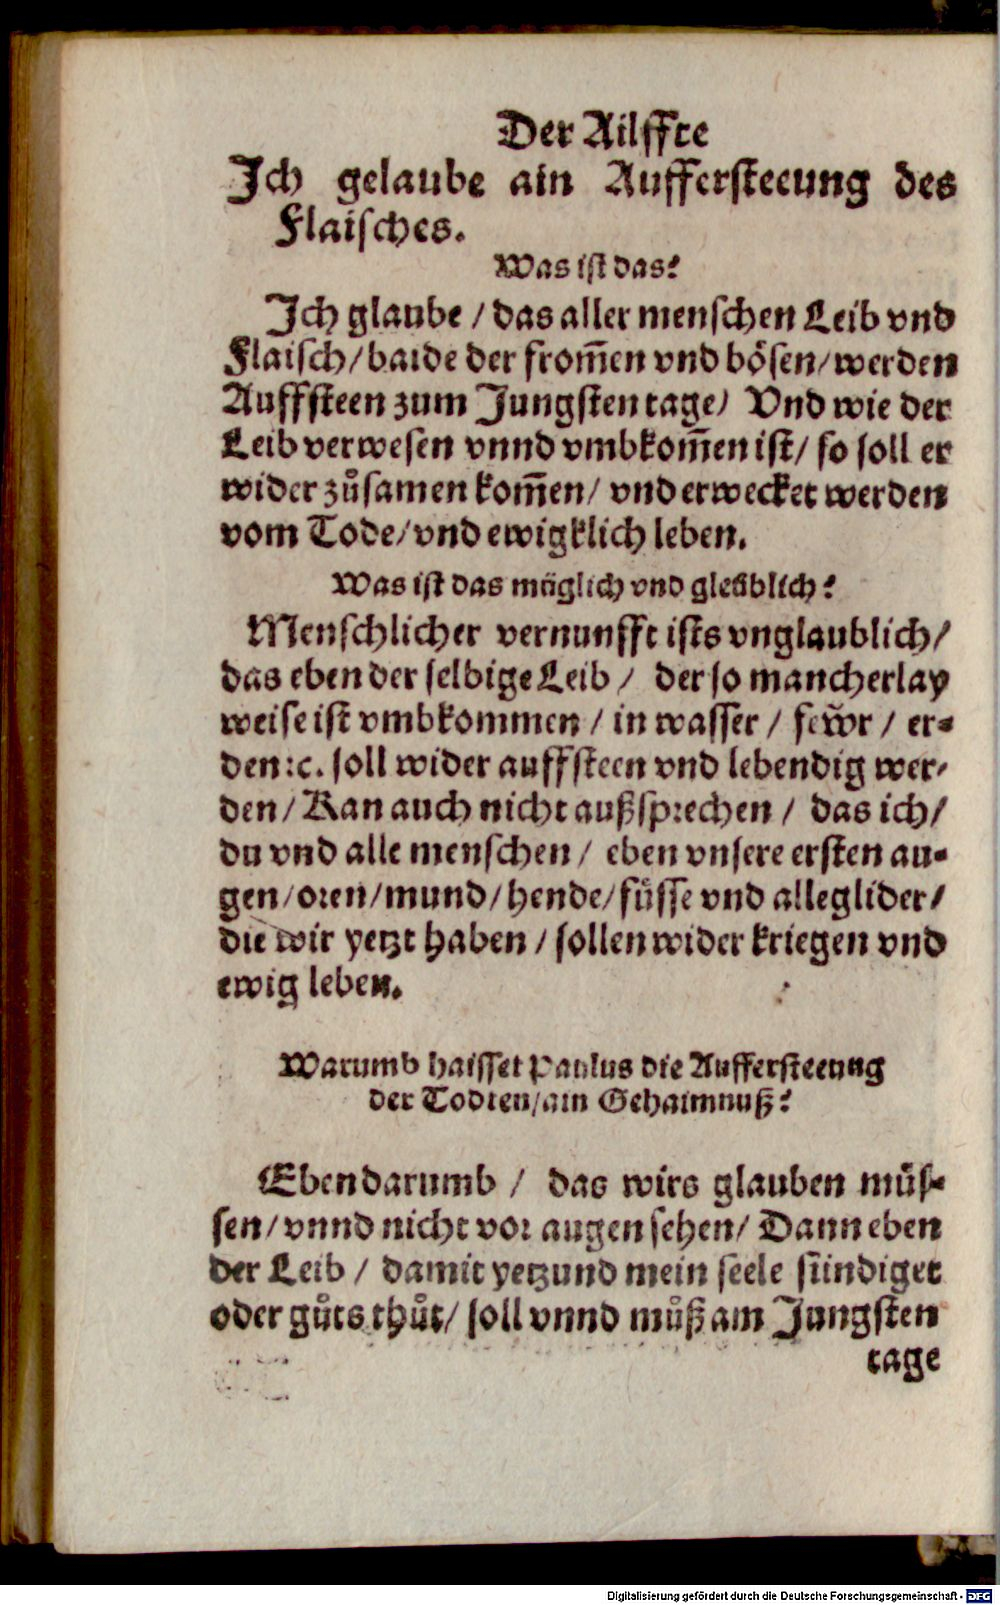 Der Ailffte
Ich gelaube ain Auffersteeung des
Flaisches.
Was ist das?
Ich glaube / das aller menschen Leib vnd
Flaisch / baide der from̃en vnd bösen / werden
Auffsteen zum Jungsten tage / Vnd wie der
Leib verwesen vnnd vmbkom̃en ist / so soll er
wider zůsamen kom̃en / vnd erwecket werden
vom Tode / vnd ewigklich leben.
Was ist das müglich vnd gleüblich?
Menschlicher vernunfft ists vnglaublich /
das eben der selbige Leib / der so mancherlay
weise ist vmbkommen / in wasser / fewͤr / er-
den ꝛc. soll wider auffsteen vnd lebendig wer-
den / Kan auch nicht außsprechen / das ich /
du vnd alle menschen / eben vnsere ersten au-
gen / oren / mund / hende / füsse vnd alle glider /
die wir yetzt haben / sollen wider kriegen vnd
ewig leben.
Warumb haisset Paulus die Auffersteeung
der Todten / ain Gehaimnuß?
Eben darumb / das wirs glauben müs-
sen / vnnd nicht vor augen sehen / Dann eben
der Leib / damit yetzund mein seele sündiget
oder gůts thůt / soll vnnd můß am Jungsten
tage
Digitalisierung gefördert durch die Deutsche Forschungsgemeinschaft - DFG